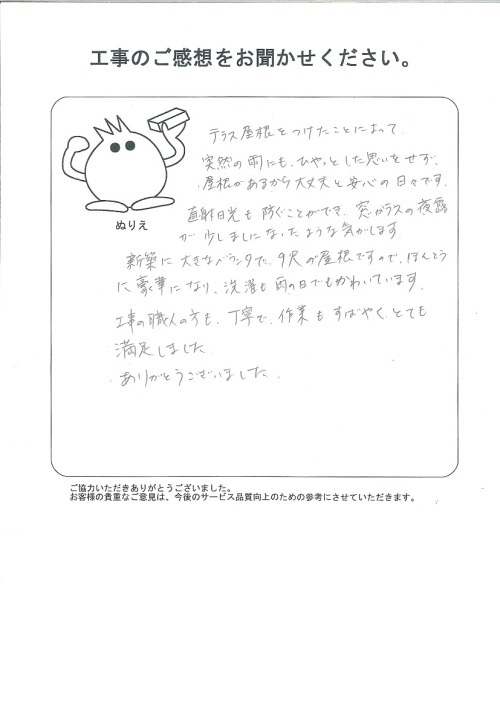 工事のご感想をお聞かせください。
テラス屋根をつけたことによって、
突然の雨にも、ひやっとした思いをせず、
屋根があるから大丈夫と安心の日々です。
直射日光も防ぐことができ、窓ガラスの夜露
が少しましになったような気がします
ぬりえ
新築に大きなベランダで、9尺の屋根ですので、ほんとう
に豪華になり、洗濯も雨の日でもかわいています。
工事の職人の方も、丁寧で、作業もすばやく、とても
満足しました
ありがとうございました。
ご協力いただきありがとうございました。
お客様の貴重なご意見は、今後のサービス品質向上のための参考にさせていただきます。